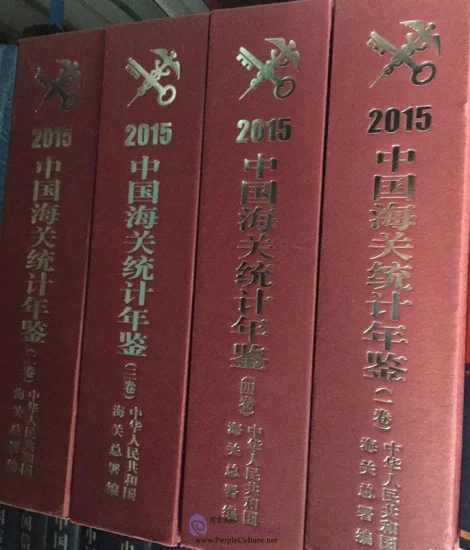 2015
中国海关统计年鉴(二卷)
中华人民共和国
海关总署编
2015
中国海关统计年鉴(三卷)
中华人民共和国
海关总署编
2015
中国海关统计年鉴(四卷)
中华人民共和国
海关总署编
2015
中国海关统计年鉴(一卷)
中华人民共和国
海关总署编
www.PurpleCulture.net